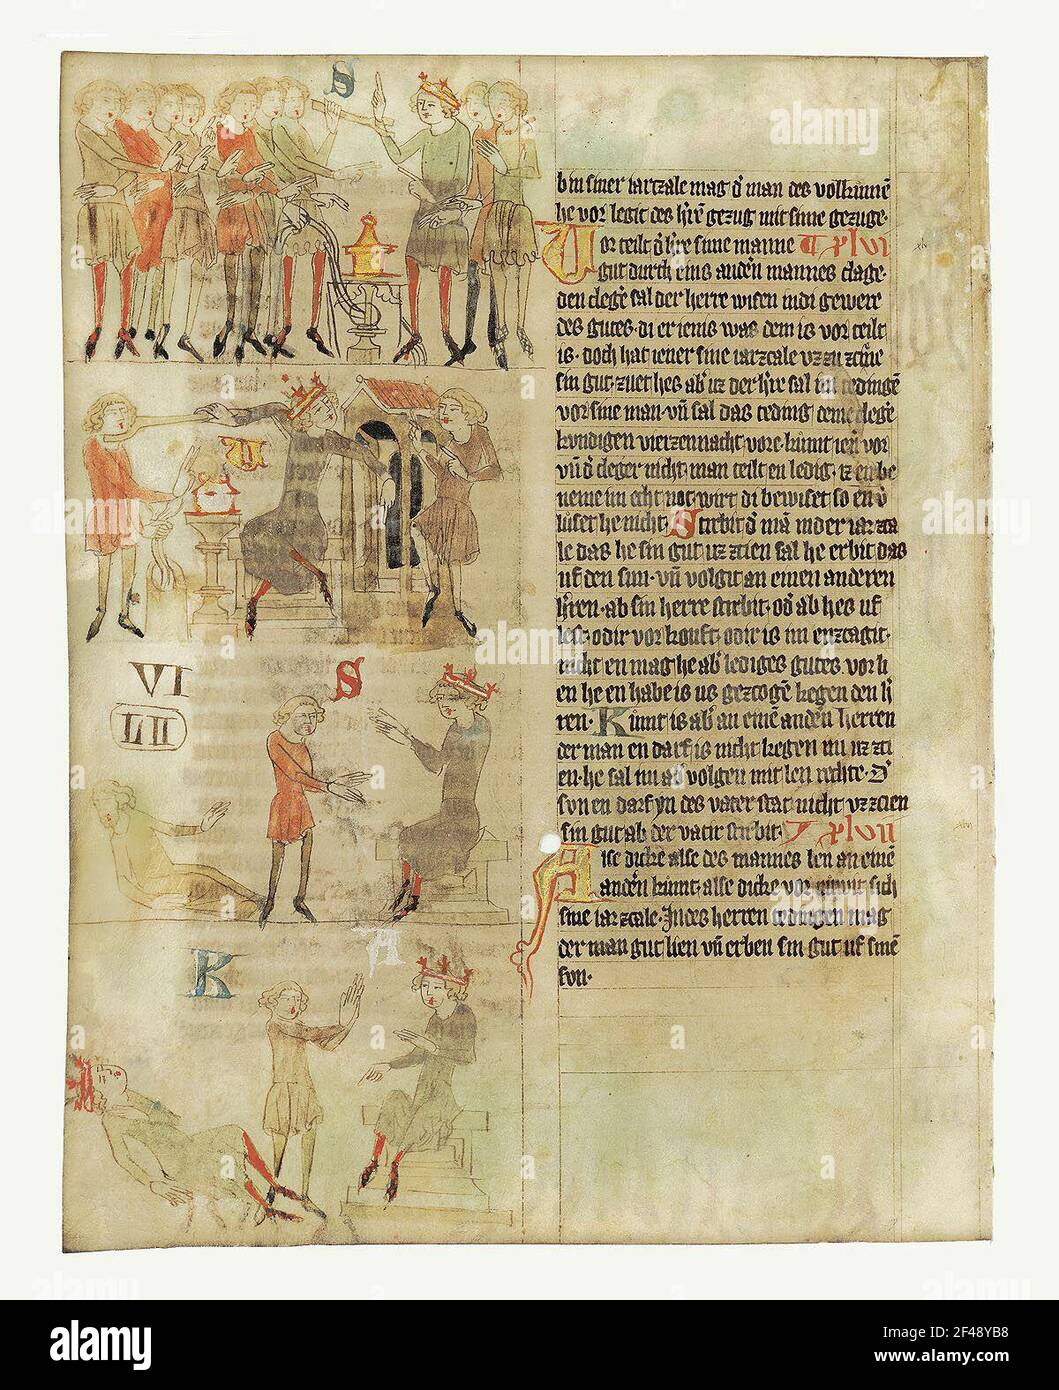 S
U
VI
LII
S
K
A
bin siner iartzale mag d' man des volkumen
he vor legit des h're gezug mit sine gezuge.
Vor teilt d' h're sine manne XLVI
gut durch eins andern mannes clage.
den cleg' sal der herre wisen in di gewere
des gutes. di er ienis was dem is vor teilt
is. doch hat iener sine iarzcale
sin gut. hes ab' uz der h're sal im tedingē
vor sine man. vn̄ sal das teding deme clege
kundigen vierzennacht vore. kumt ien' vor
vn̄ d' cleger nicht. man teilt en ledig. iz en be
neme im echt not. wirt di bewiset so en v'
luset he nicht. Stirbit d' mā in der iarzca
le das he sin gut uz zcien sal he erbit das
uf den sun. vn̄ volgit an einen anderen
h'ren. ab sin herre stirbit. od' ab hes uf
lest. odir vor kouft. odir is im enzcagit.
nicht en mag he ab' lediges gutes. vor li
en he en habe is us gezcogē kegen den h'
ren. Kumt is ab' an einē anden herren
der man en darf is nicht kegen im uz zci
en. he sal im ab' volgen mit len rechte. D'
son en darf yn des vater stat nicht vz zcien
sin gut ab der vatir stirbit. XLVII
Also dicke alse des mannes len an einē
anderen kumt. alse dicke vor niwit sich
sine iarzcale. In des herren tedingen mag
der man gut lien vn̄ erben sin gut uf sinē
son.
alamy
Image ID: 2F48YB8
www.alamy.com